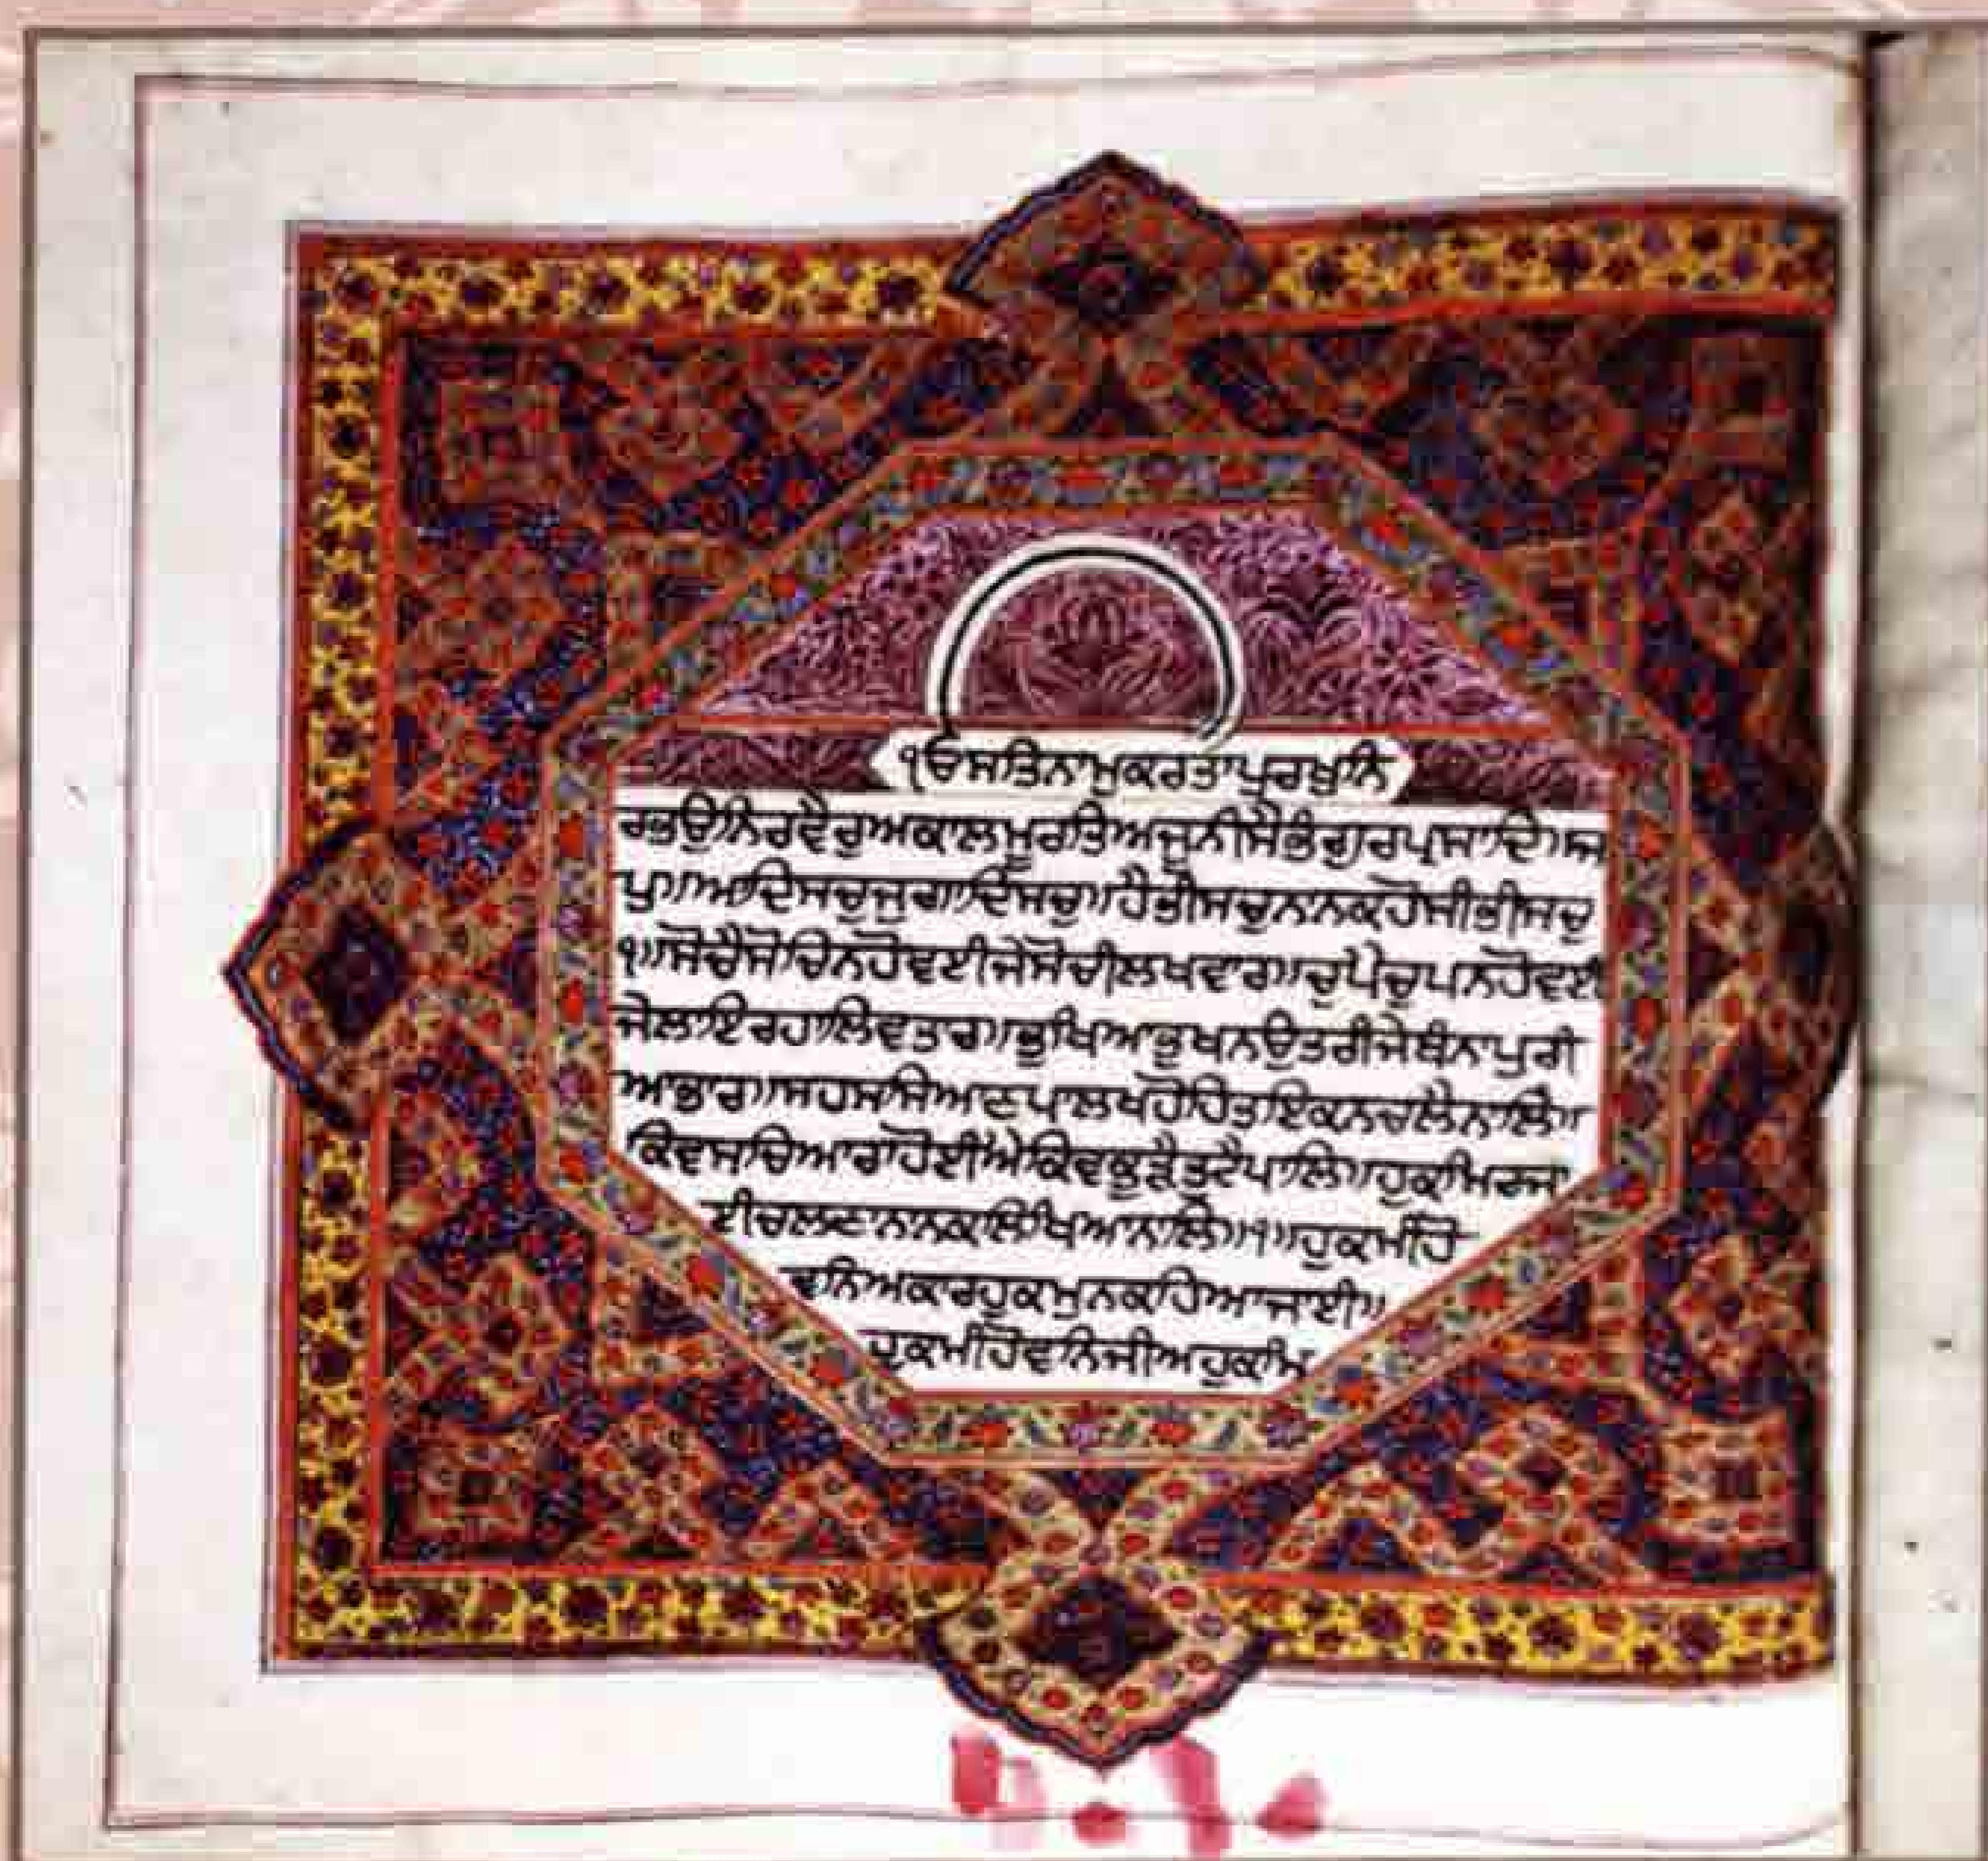 ੴਸਤਿਨਾਮੁਕਰਤਾਪੁਰਖੁਨਿ
ਰਭਉਨਿਰਵੈਰੁਅਕਾਲਮੂਰਤਿਅਜੂਨੀਸੈਭੰਗੁਰਪ੍ਰਸਾਦਿ॥ਜ
ਪੁ॥ਆਦਿਸਚੁਜੁਗਾਦਿਸਚੁ॥ਹੈਭੀਸਚੁਨਾਨਕਹੋਸੀਭੀਸਚੁ
੧॥ਸੋਚੈਸੋਚਿਨਹੋਵਈਜੇਸੋਚੀਲਖਵਾਰ॥ਚੁਪੈਚੁਪਨਹੋਵਈ
ਜੇਲਾਇਰਹਾਲਿਵਤਾਰ॥ਭੁਖਿਆਭੁਖਨਉਤਰੀਜੇਬੰਨਾਪੁਰੀ
ਆਭਾਰ॥ਸਹਸਸਿਆਣਪਾਲਖਹੋਹਿਤਇਕਨਚਲੈਨਾਲਿ॥
ਕਿਵਸਚਿਆਰਾਹੋਈਐਕਿਵਕੂੜੈਤੁਟੈਪਾਲਿ॥ਹੁਕਮਿਰਜਾ
ਈਚਲਣਾਨਾਨਕਲਿਖਿਆਨਾਲਿ॥੧॥ਹੁਕਮੀਹੋ
ਵਨਿਅਕਾਰਹੁਕਮੁਨਕਹਿਆਜਾਈ॥
ਹੁਕਮੀਹੋਵਨਿਜੀਅਹੁਕਮਿ